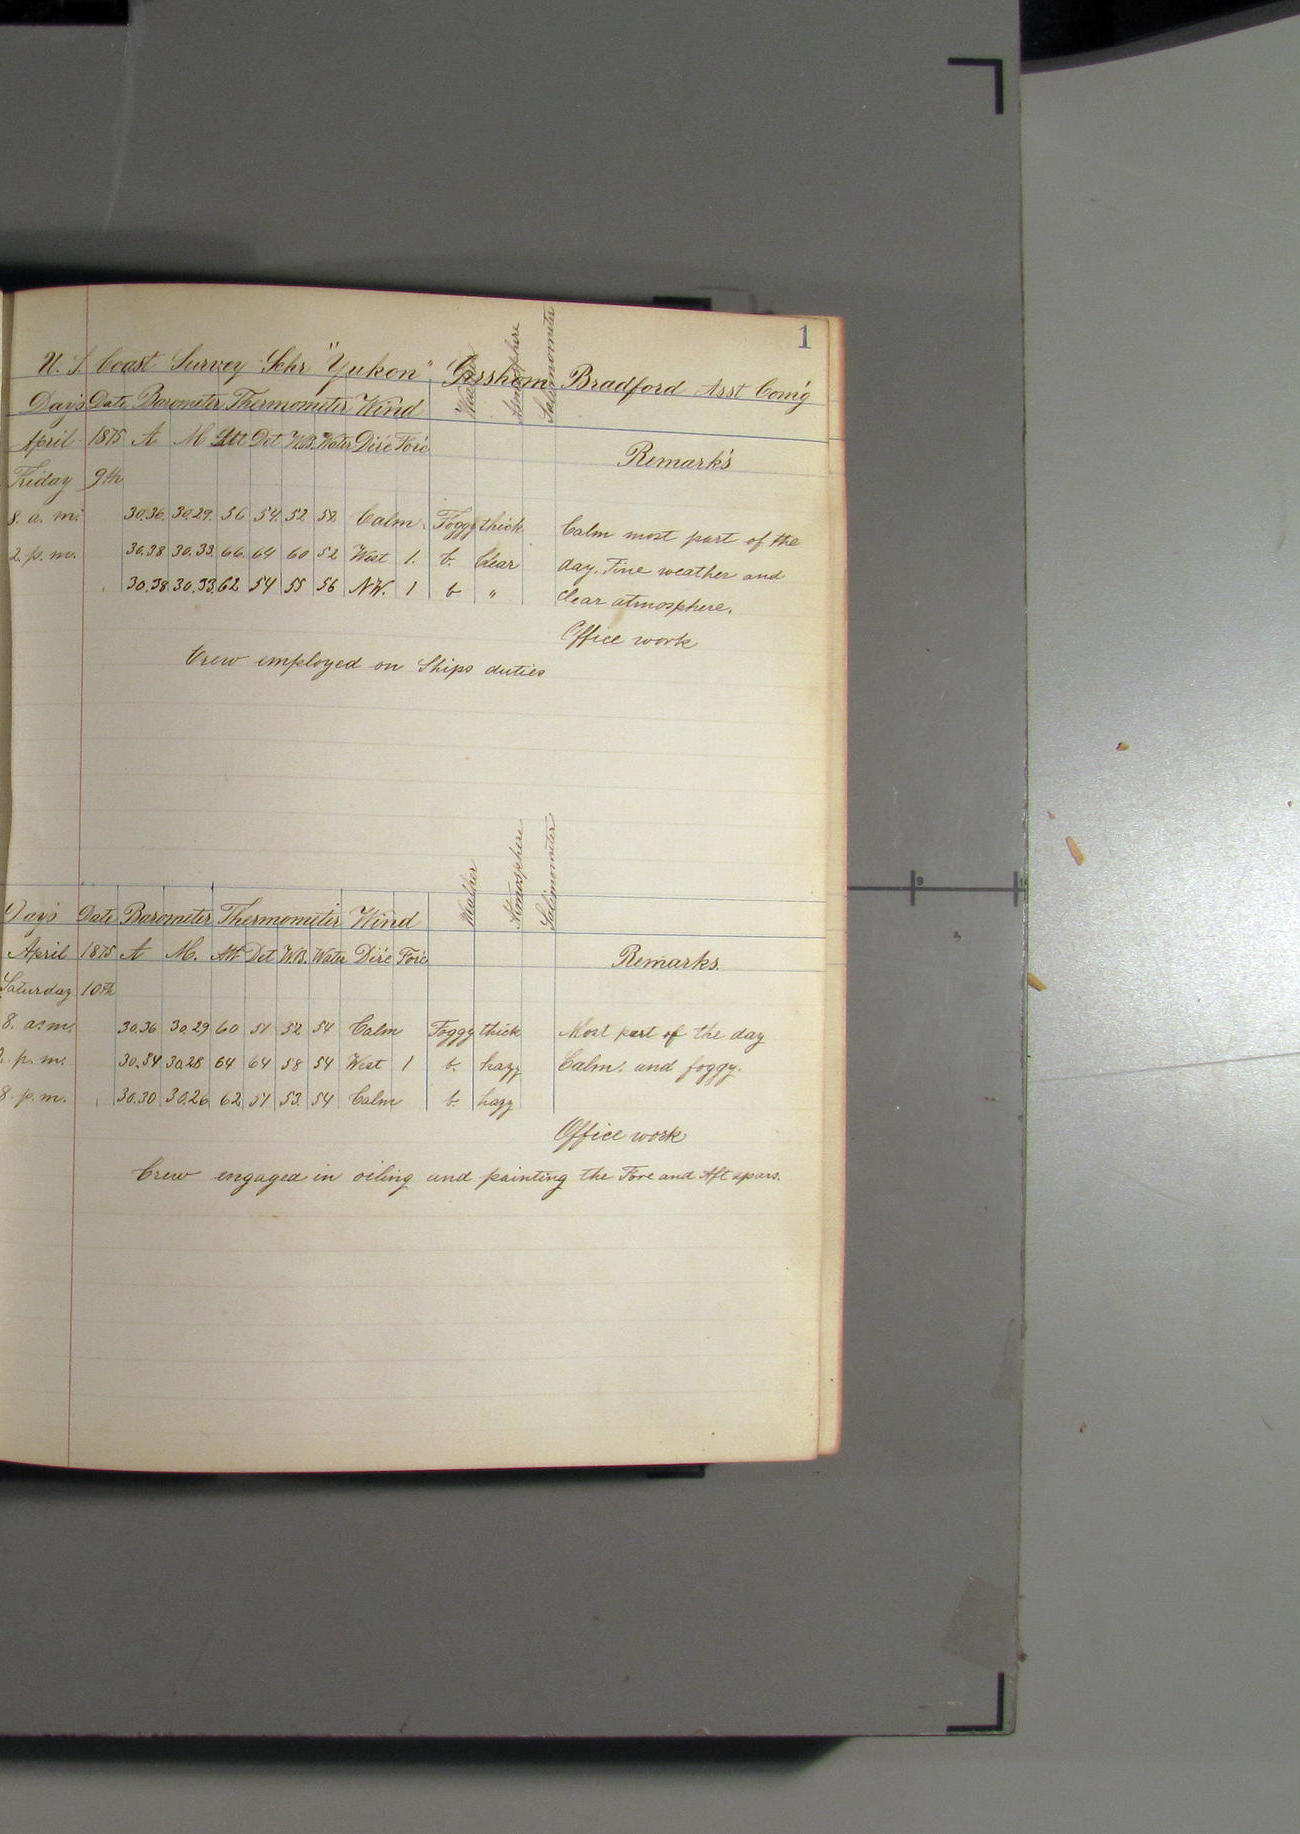 1
U. S. Coast Survey Schr "Yukon" Gershom Bradford Asst Com'g
Day's Date Barometer Thermometer Wind Weather Atmosphere Salinometer
April 1875 A M Att Det W.B. Water Dire Forc Remark's
Friday 9th
8. a. m. 30.36. 30.29. 56 54. 52 52. Calm. Foggy thick Calm most part of the
2. p. m. 30.38 30.33. 66. 64 60 52 West 1. b. Clear day. Fine weather and
30.38. 30.33. 62 54 55 56 N.W. 1 b " clear atmosphere.
Office work
Crew employed on Ships duties
Day's Date Barometer Thermometer Wind Weather Atmosphere Salinometer
April 1875 A M. Att Det W.B. Water Dire Forc Remarks.
Saturday 10th
8. a. m. 30.36 30.29 60 51 52 54 Calm Foggy thick Most part of the day
p. m. 30.34 30.28 64 64 58 54 West 1 b. hazy Calm. and foggy.
8. p. m. 30.30 30.26 62 51 53. 54 Calm b. hazy
Office work
Crew engaged in oiling and painting the Fore and Aft spars.
9